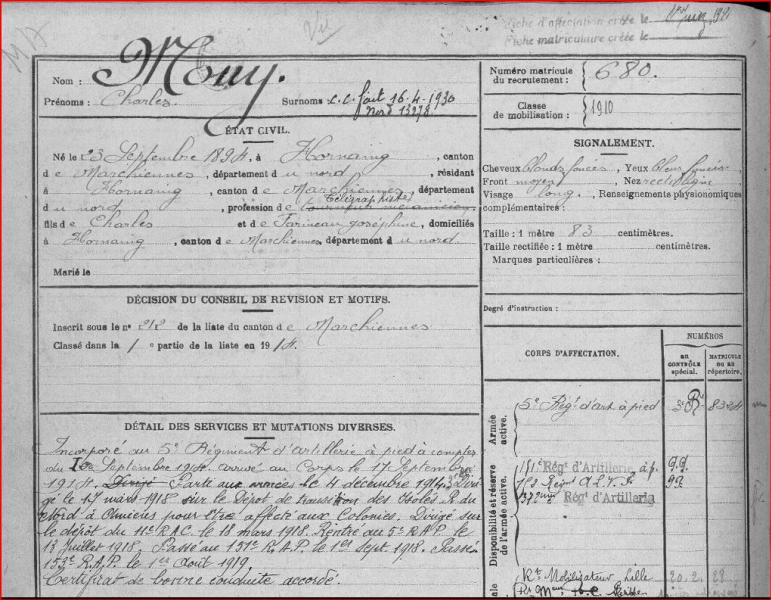 Vu
Fiche d'affectation créée le
Fiche matriculaire créée le
Nom : Mouy.
Prénoms : Charles. Surnoms : L.C. fait 16.4.1930
Nord 13278
Numéro matricule du recrutement : 680.
Classe de mobilisation : 1910
ÉTAT CIVIL.
Né le 23 Septembre 1894, à Hornaing, canton
de Marchiennes, département du nord, résidant
à Hornaing, canton de Marchiennes, département
Télégraphiste
du nord, profession de
fils de Charles et de Farineau Joséphine, domiciliés
à Hornaing, canton de Marchiennes, département du nord.
Marié le
SIGNALEMENT.
Cheveux blonds foncés, Yeux bleus foncés
Front moyen, Nez rectiligne
Visage long. Renseignements physionomiques
complémentaires :
Taille : 1 mètre 83 centimètres.
Taille rectifiée : 1 mètre centimètres.
Marques particulières :
Degré d'instruction :
DÉCISION DU CONSEIL DE REVISION ET MOTIFS.
Inscrit sous le n° 212 de la liste du canton de Marchiennes
Classé dans la 1e partie de la liste en 1914.
DÉTAIL DES SERVICES ET MUTATIONS DIVERSES.
Incorporé au 5e Régiment d'artillerie à pied à compter
du Septembre 1914. arrivé au Corps le 17 Septembre
1914. Dirigé Parti aux armées le 4 décembre 1914. Diri-
gé le 17 mars 1918 sur le Dépôt de transition des Isolés R. du
Nord à pour être affecté aux Colonies. Dirigé sur
le dépôt du R.A.C. le 18 mars 1918. Rentré au 5e R.A.P. le
18 Juillet 1918. Passé au 151e R.A.P. le 1er Sept 1918. Passé
153e R.A.P. le 1er Août 1919.
Certificat de bonne conduite accordé.
CORPS D'AFFECTATION.
NUMÉROS
au contrôle spécial.
matricule ou au répertoire.
Armée active.
5e Régt d'art à pied 8324
Disponibilité et réserve de l'armée active.
151e Régt d'Artillerie à p.
Régt d'Artillerie
Ct Mobilisateur Lille 20.2. 28